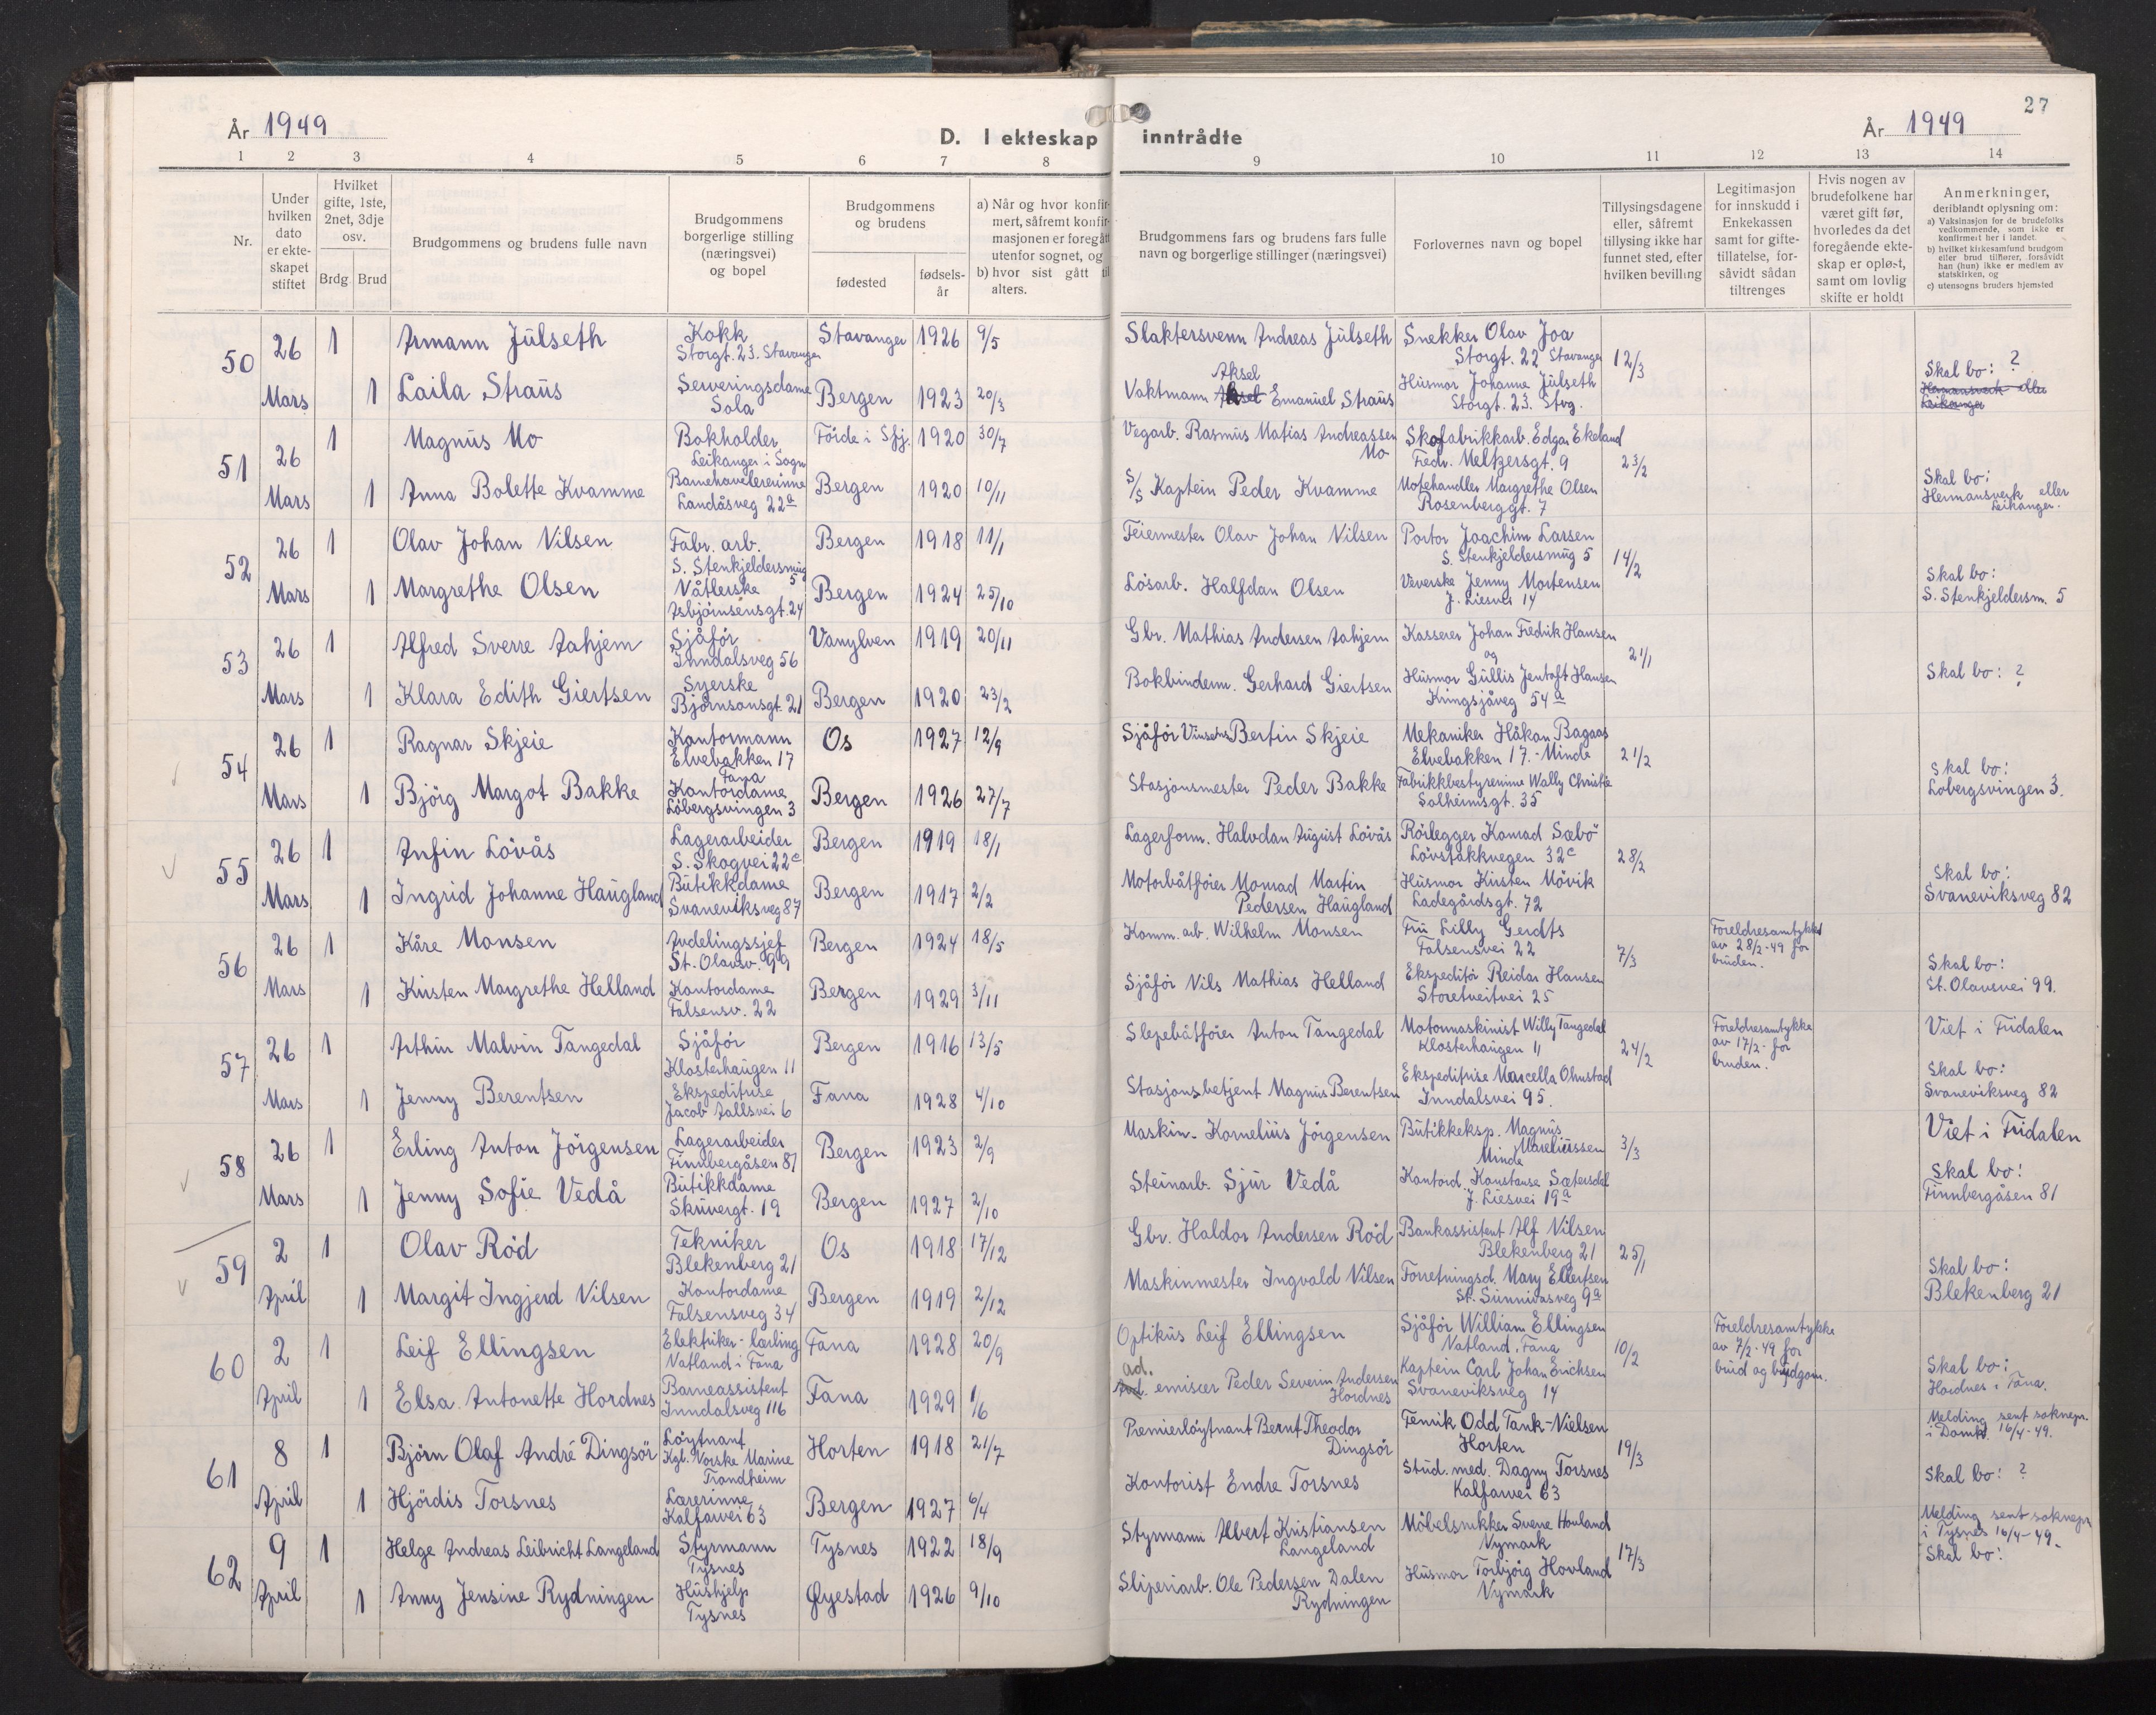 År 1949
D. I ekteskap inntrådte
År 1949
27
1 2 3 4 5 6 7 8 9 10 11 12 13 14
Nr.
Under hvilken dato er ekteskapet stiftet
Hvilket gifte, 1ste, 2net, 3dje osv.
Brdg Brud
Brudgommens og brudens fulle navn
Brudgommens borgerlige stilling (næringsvei) og bopel
Brudgommens og brudens
fødested
fødselsår
a) Når og hvor konfirmert, såfremt konfirmasjonen er foregått utenfor sognet, og
b) hvor sist gått til alters.
Brudgommens fars og brudens fars fulle navn og borgerlige stillinger (næringsvei)
Forlovernes navn og bopel
Tillysingsdagene eller, såfremt tillysing ikke har funnet sted, efter hvilken bevilling
Legitimasjon for innskudd i Enkekassen samt for giftetillatelse, forsåvidt sådan tiltrenges
Hvis nogen av brudefolkene har været gift før, hvorledes da det foregående ekteskap er opløst, samt om lovlig skifte er holdt
Anmerkninger, deriblandt oplysning om:
a) Vaksinasjon for de brudefolks vedkommende, som ikke er konfirmert her i landet.
b) hvilket kirkesamfund brudgom eller brud tilhører, forsåvidt han (hun) ikke er medlem av statskirken, og
c) utensogns bruders hjemsted
50 26 Mars
1 Armann Julseth Kokk Storgt. 23. Stavanger Stavanger 1926 9/5 Slaktersvenn Andreas Julseth Snekker Olav Joa Storgt. 22 Stavanger 12/3
1 Laila Straus Serveringsdame Sola Bergen 1923 20/3 Vaktmann Aksel Emanuel Straus Husmor Johanna Julseth Storgt. 23. Stvg. Skal bo: ? Hermansverk eller Leikanger
51 26 Mars
1 Magnus Mo Bokholder Leikanger i Sogn Førde i Sfj. 1920 30/7 Vegarb. Rasmus Matias Andreassen Mo Skofabrikkarb. Edgar Ekeland Fredr. Meltzersgt. 9 23/2
1 Anna Bolette Kvamme Barnehavelærerinne Landåsveg 22a Bergen 1920 10/11 S/S Kaptein Peder Kvamme Motehandler Margrethe Olsen Rosenberggt. 7 Skal bo: Hermansverk eller Leikanger.
52 26 Mars
1 Olav Johan Nilsen Fabr. arb. S. Stenkjeldersmug 5 Bergen 1918 11/1 Feiermester Olav Johan Nilsen Portør Joachim Larsen S. Stenkjeldersmug 5 14/2
1 Margrethe Olsen Våtlerske Asbjørnsensgt. 24 Bergen 1924 25/10 Løsarb. Halfdan Olsen Veverske Jenny Mortensen J. Liesvei 14 Skal bo: S. Stenkjeldersm. 5
53 26 Mars
1 Alfred Sverre Aahjem Sjåfør Inndalsveg 56 Vanylven 1919 20/11 Gbr. Mathias Andersen Aahjem Kasserer Johan Fredrik Hansen og 21/1
1 Klara Edith Giertsen Syerske Bjørnsonsgt. 21 Bergen 1920 23/2 Bokbinderm. Gerhard Giertsen Husmor Gullis Jentoft Hansen Kringsjåveg 54a Skal bo: ?
54 26 Mars
1 Ragnar Skjeie Kontormann Elvebakken 17 Fana Os 1927 12/9 Sjåfør Vinsents Bertin Skjeie Mekaniker Håkon Bagaas Elvebakken 17. - Minde 21/2
1 Bjørg Margot Bakke Kontordame Løbergsvingen 3 Bergen 1926 27/7 Stasjonsmester Peder Bakke Fabrikkbestyrerinne Wally Christie Solheimsgt. 35 Skal bo: Løbergsvingen 3.
55 26 Mars
1 Anfin Løvås Lagerarbeider S. Skogvei 22c Bergen 1919 18/1 Lagerform. Halvdan August Løvås Rørlegger Konrad Sæbø Løvstakkvegen 32c 28/2
1 Ingrid Johanne Haugland Butikkdame Svaneviksveg 87 Bergen 1917 2/2 Motorbåtfører Monrad Martin Pedersen Haugland Husmor Kirsten Møvik Ladegårdsgt. 72 Skal bo: Svaneviksveg 82
56 26 Mars
1 Kåre Monsen Avdelingssjef St. Olavsv. 99 Bergen 1924 18/5 Komm. arb. Wilhelm Monsen Fru Lilly Gerdts Falsensvei 22 7/3 Foreldresamtykke av 28/2-49 for bruden.
1 Kirsten Margrethe Helland Kontordame Falsensv. 22 Bergen 1929 3/11 Sjåfør Nils Mathias Helland Ekspeditør Reidar Hansen Storetveitvei 25 Skal bo: St. Olavsvei 99.
57 26 Mars
1 Arthur Malvin Tangedal Sjåfør Klosterhaugen 11 Bergen 1916 13/5 Slepebåtfører Anton Tangedal Motormaskinist Willy Tangedal Klosterhaugen 11 24/2 Foreldresamtykke av 17/2- for bruden. Viet i Fridalen
1 Jenny Berentsen Ekspeditrise Jacob Aallsvei 6 Fana 1928 4/10 Stasjonsbetjent Magnus Berentsen Ekspeditrise Marcella Ohnstad Inndalsvei 95. Skal bo: Svaneviksveg 82
58 26 Mars
1 Erling Anton Jørgensen Lagerarbeider Finnbergåsen 81 Bergen 1923 2/9 Maskin. Kornelius Jørgensen Butikkeksp. Magnus Mareliussen Minde 3/3 Viet i Fridalen
1 Jenny Sofie Vedå Butikkdame Skuvergt. 19 Bergen 1927 2/10 Steinarb. Sjur Vedå Kontord. Konstanse Sætersdal J. Liesvei 19a Skal bo: Finnbergåsen 81
59 2 April
1 Olav Rød Tekniker Blekenberg 21 Os 1918 17/12 Gbr. Haldor Andersen Rød Bankassistent Alf Nilsen Blekenberg 21 25/1
1 Margit Ingjerd Nilsen Kontordame Falsensveg 34 Bergen 1919 2/12 Maskinmester Ingvald Nilsen Forretningsd. Mary Ellertsen St. Sunnivasveg 9a Skal bo: Blekenberg 21
60 2 April
1 Leif Ellingsen Elektriker-lærling Natland i Fana Fana 1928 20/9 Optikus Leif Ellingsen Sjåfør William Ellingsen Natland, Fana 10/2 Foreldresamtykke av 7/2-49 for brud og brudgom.
1 Elsa Antonette Hordnes Barneassistent Inndalsveg 116 Fana 1929 1/6 ad. emissær Peder Severin Andersen Hordnes Kaptein Carl Johan Erichsen Svaneviksveg 14 Skal bo: Hordnes i Fana.
61 8 April
1 Bjørn Olaf André Dingsør Løytnant Kgl. Norske Marine Trondheim Horten 1918 21/7 Premierløytnant Bernt Theodor Dingsør Fenrik Odd Tank-Nielsen Horten 19/3 Melding sent soknepr. i Domk. 16/4-49.
1 Hjørdis Torsnes Lærerinne Kalfarvei 63 Bergen 1927 6/4 Kontorist Endre Torsnes Stud. med. Dagny Torsnes Kalfarvei 63 Skal bo: ?
62 9 April
1 Helge Andreas Leibricht Langeland Styrmann Tysnes Tysnes 1922 18/9 Styrmann Albert Kristiansen Langeland Møbelsnekker Sverre Hovland Nymark 17/3 Melding sent soknepr i Tysnes 16/4-49. Skal bo:
1 Anny Jensine Rydningen Hushjelp Tysnes Øyestad 1926 9/10 Sliperiarb. Ole Pedersen Dalen Rydningen Husmor Torbjørg Hovland Nymark